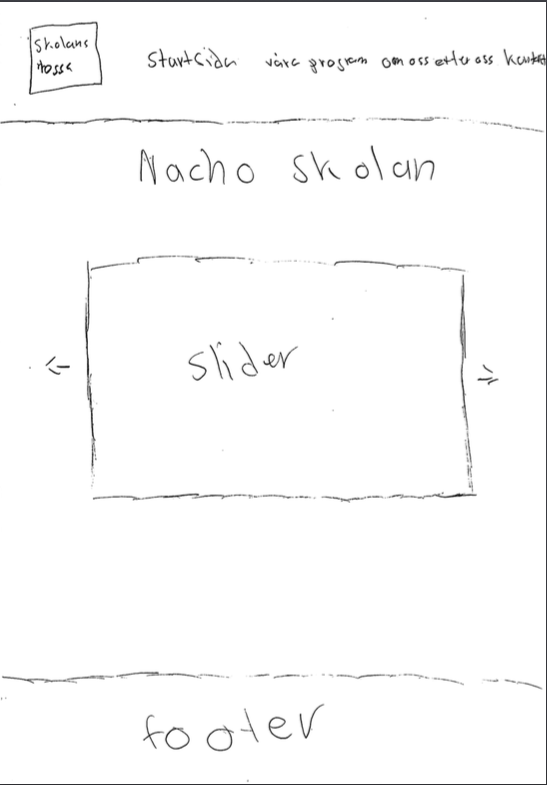 Skolans
Startsida våra program om oss efter oss
Nacho skolan
slider
footer